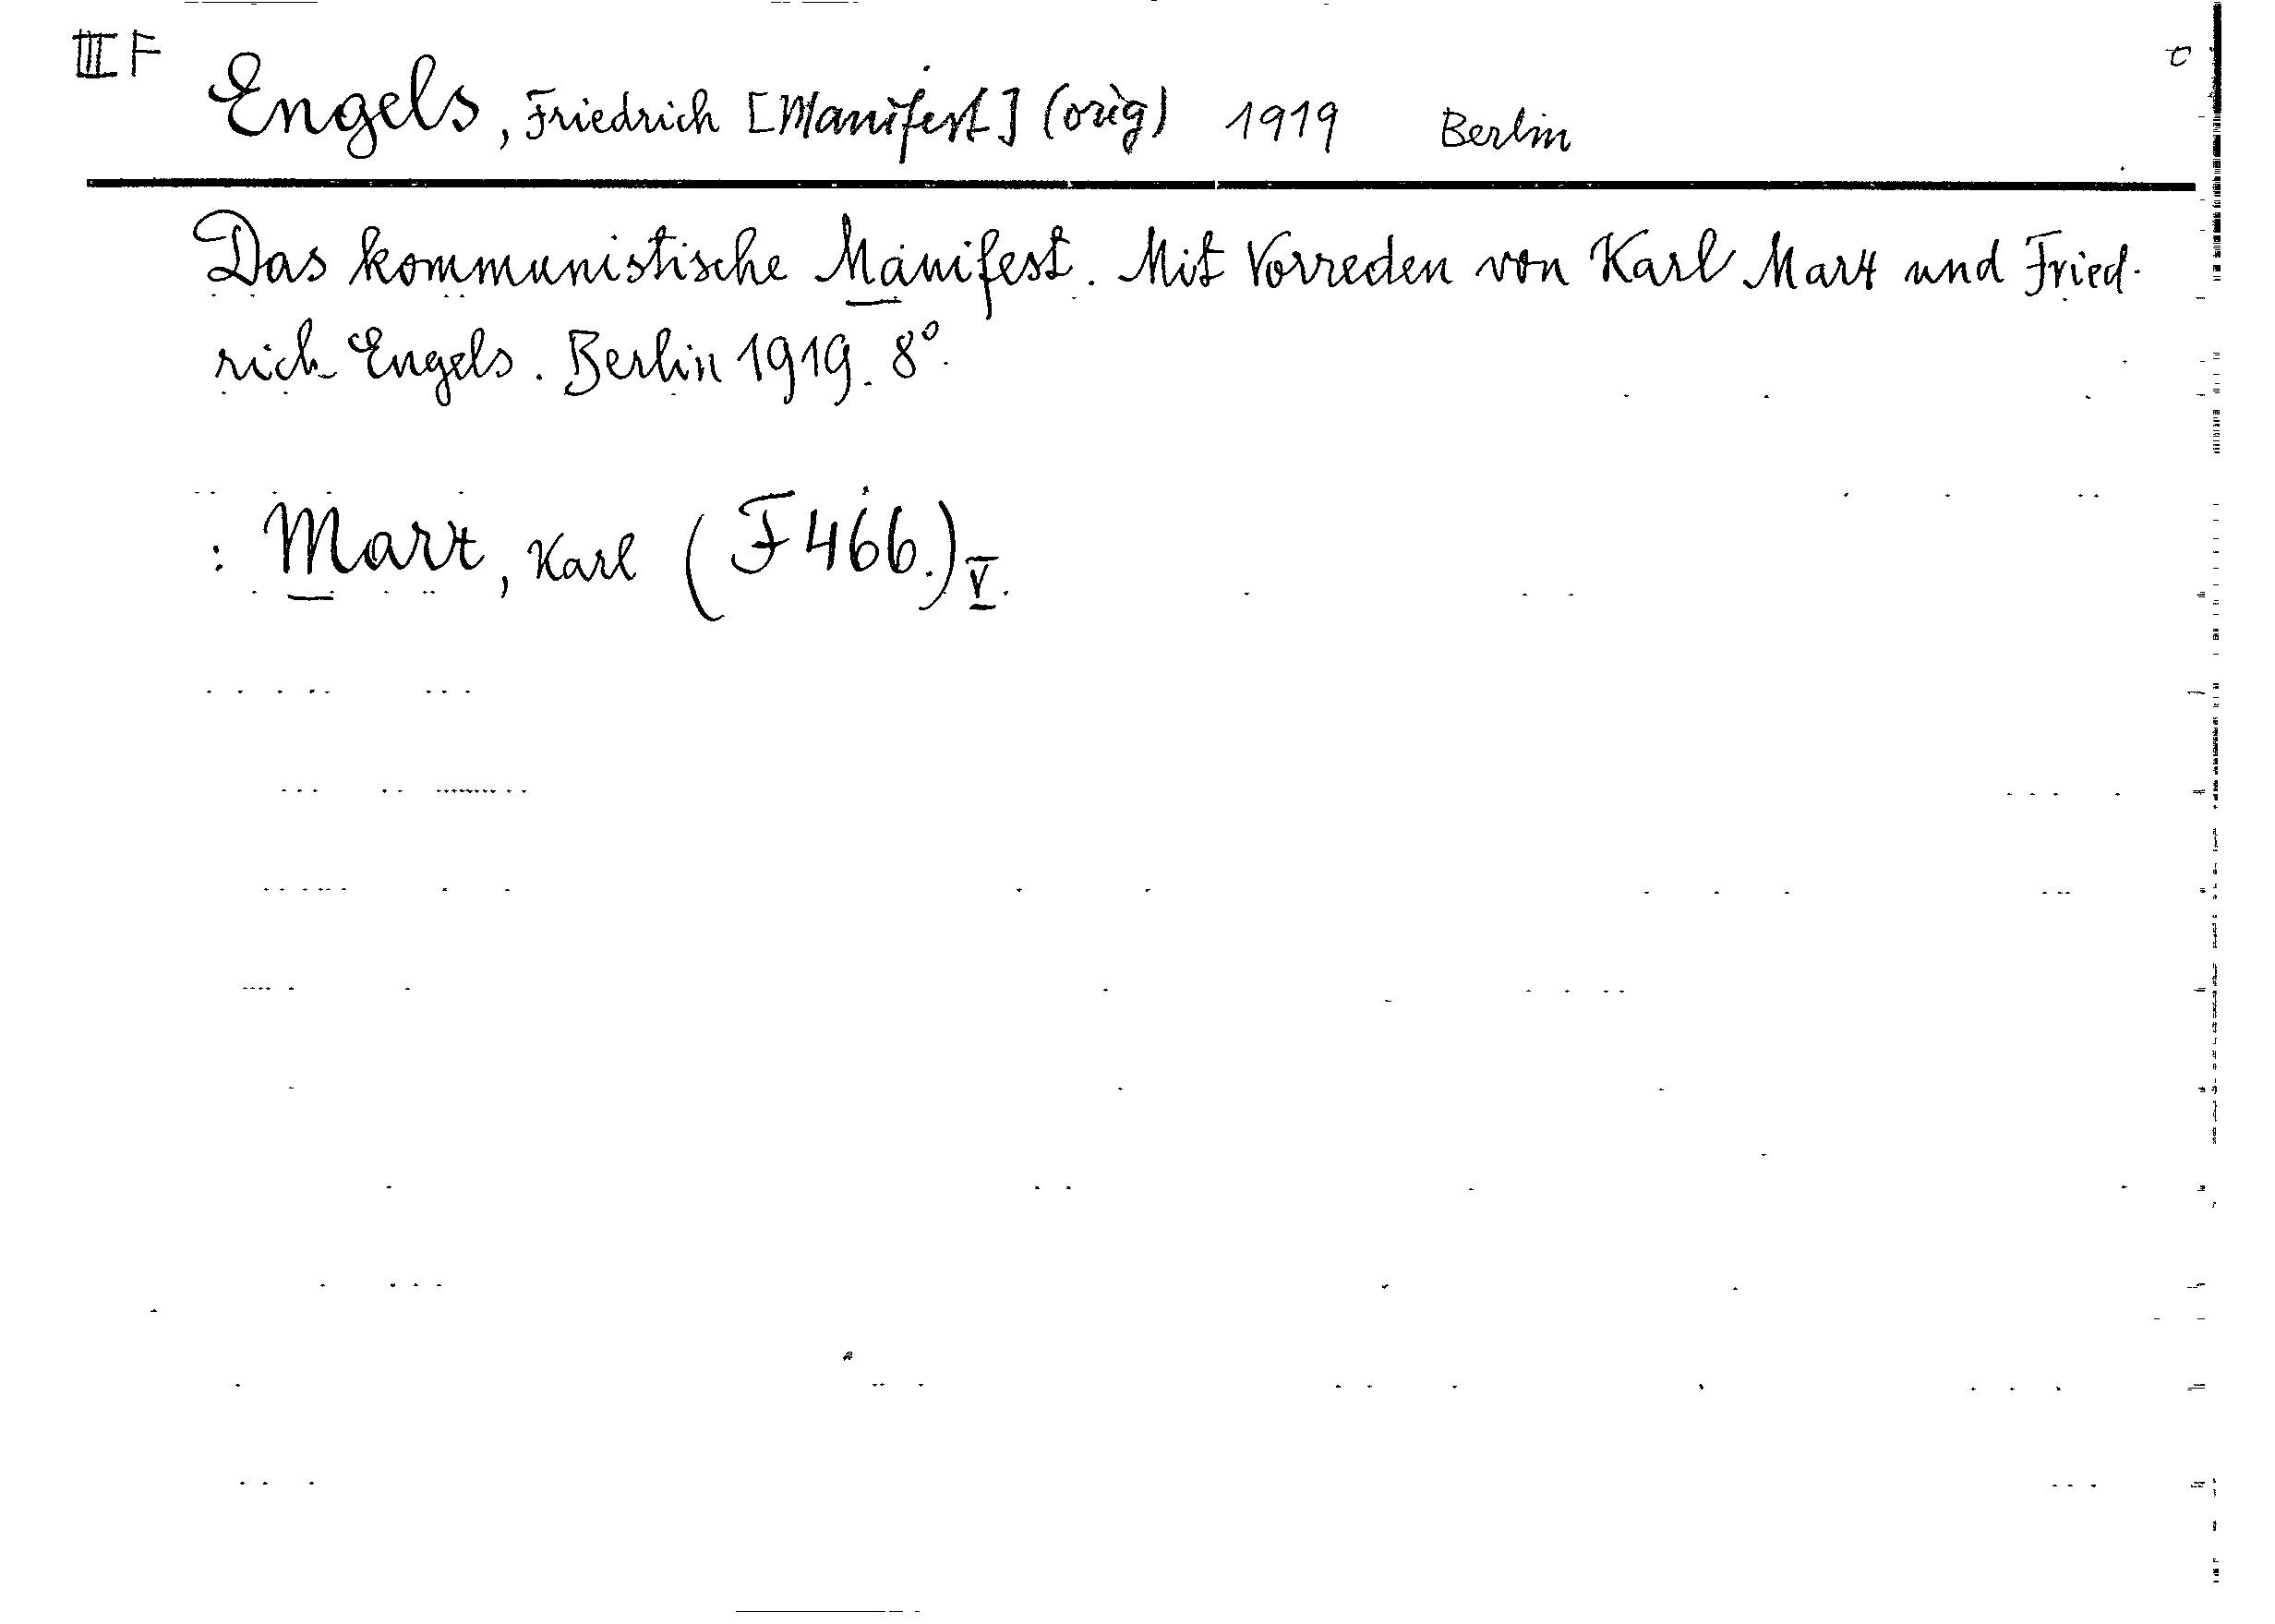 III F
Engels, Friedrich [Manifest] (orig) 1919 Berlin
Das kommunistische Manifest. Mit Vorreden von Karl Marx und Fried-
rich Engels. Berlin 1919. 8°.
: Marx, Karl (F 466.) V.